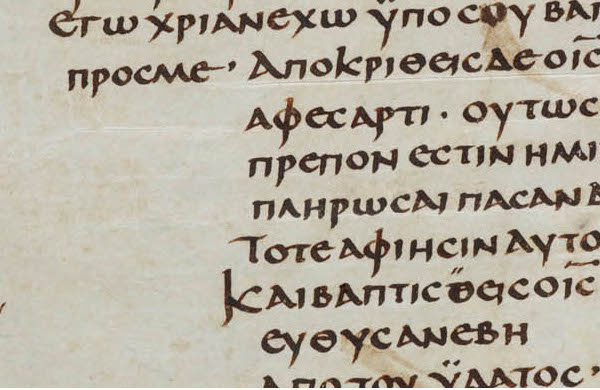 ΕΓΩ ΧΡΙΑΝ ΕΧΩ ΫΠΟ ϹΟΥ ΒΑΠ
ΠΡΟϹ ΜΕ· ΑΠΟΚΡΙΘΕΙϹ ΔΕ Ο ΙϹ̅
ΑΦΕϹ ΑΡΤΙ · ΟΥΤΩϹ
ΠΡΕΠΟΝ ΕϹΤΙΝ ΗΜΙ
ΠΛΗΡΩϹΑΙ ΠΑϹΑΝ
ΤΟΤΕ ΑΦΙΗϹΙΝ ΑΥΤΟ
ΚΑΙ ΒΑΠΤΙϹΘΕΙϹ Ο ΙϹ̅
ΕΥΘΥϹ ΑΝΕΒΗ
ΑΠΟ ΤΟΥ ΫΔΑΤΟϹ·